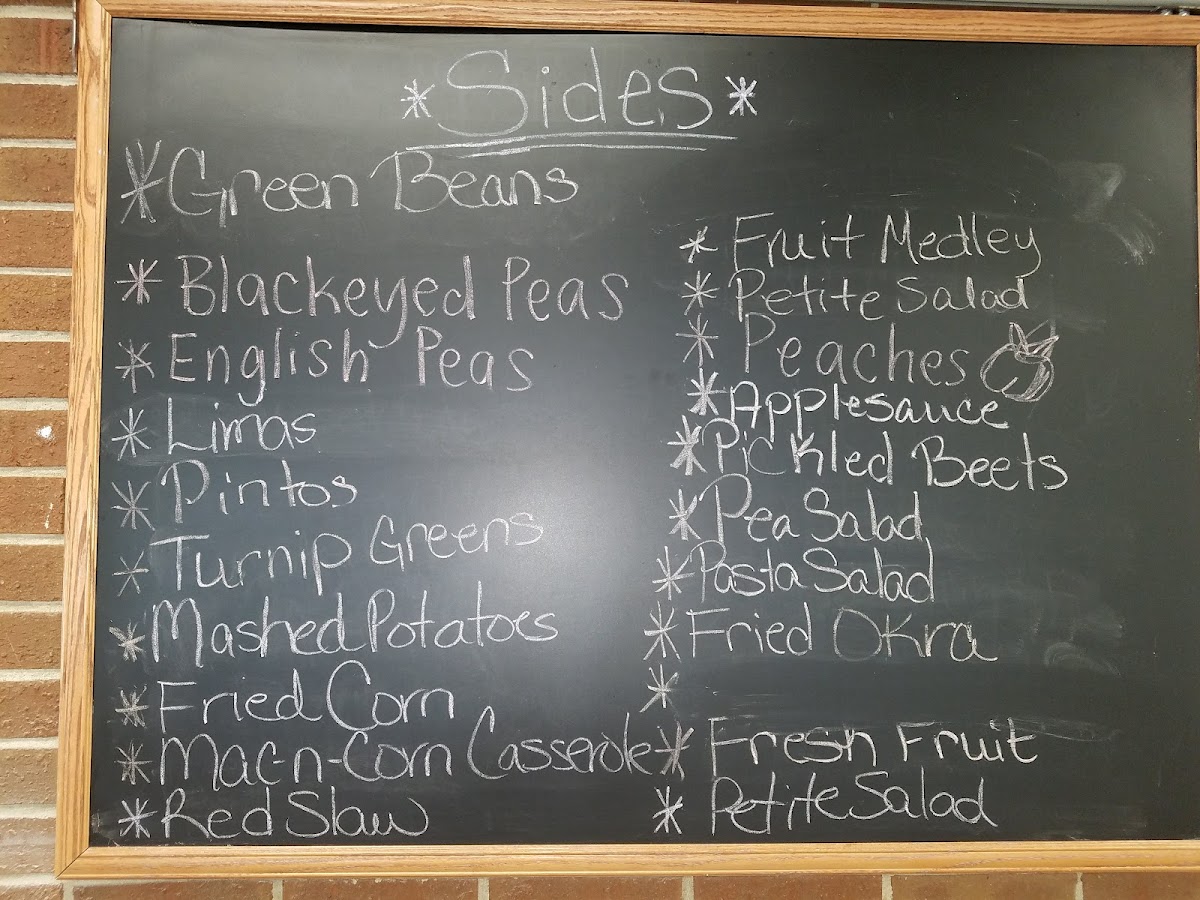 *Sides*
*Green Beans
*Blackeyed Peas
*English Peas
*Limas
*Pintos
*Turnip Greens
*Mashed Potatoes
*Fried Corn
*Mac-n-Corn Casserole
*Red Slaw
*Fruit Medley
*Petite Salad
*Peaches
*Applesauce
*Pickled Beets
*Pea Salad
*Pasta Salad
*Fried Okra
*
*Fresh Fruit
*Petite Salad